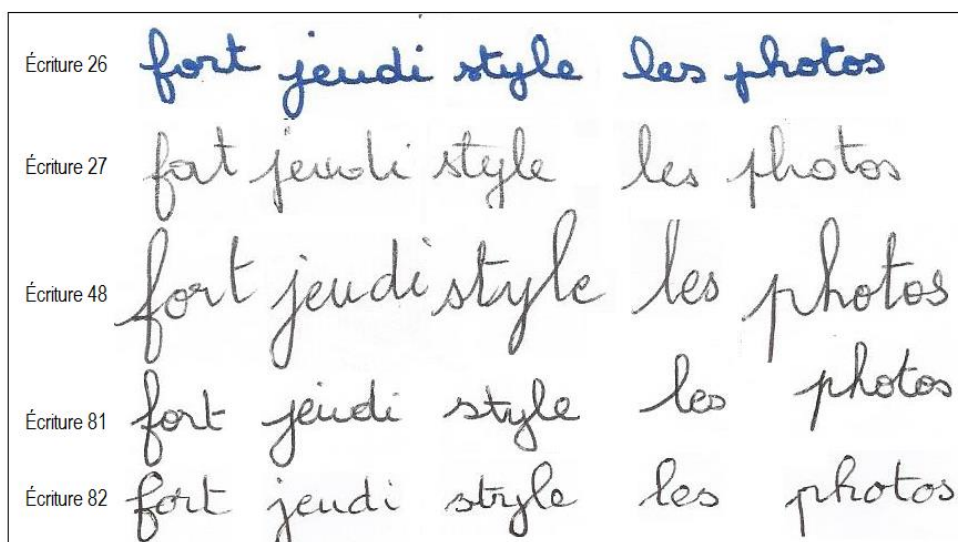 Écriture 26 fort jeudi style les photos
Écriture 27 fort jeudi style les photos
Écriture 48 fort jeudi style les photos
Écriture 81 fort jeudi style les photos
Écriture 82 fort jeudi style les photos